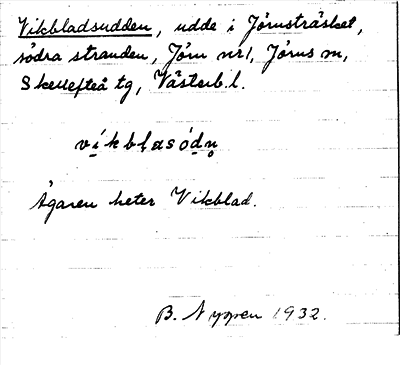 Vikbladsudden, udde i Jörnsträsket,
södra stranden, Jörn nr 1, Jörns m,
Skellefteå tg, Västerb. l.
víkblasódn̥
Ägaren heter Vikblad.
B. Nyssen 1932.